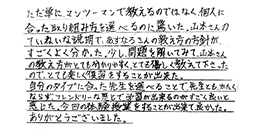 ただ単に、マンツーマンで教えるのではなく、個人に
合った取り組み方を選べるのに驚いた。山本さんの
ていねいな説明で、あすなろさんの教え方の方針が、
すごくよく分かった。少し、問題を解いてみて、山本さん
の教え方がとても分かりやすく、とても優しく教えて下さった
ので、とても楽しく復習をすることが出来た。
自分のタイプに合った先生を選べることで、先生ともかたく
ならず、フレンドリーな感じで学習が出来るのがすごく良いと
感じた。今回の体験授業をすることが出来て良かった。
ありがとうございました。